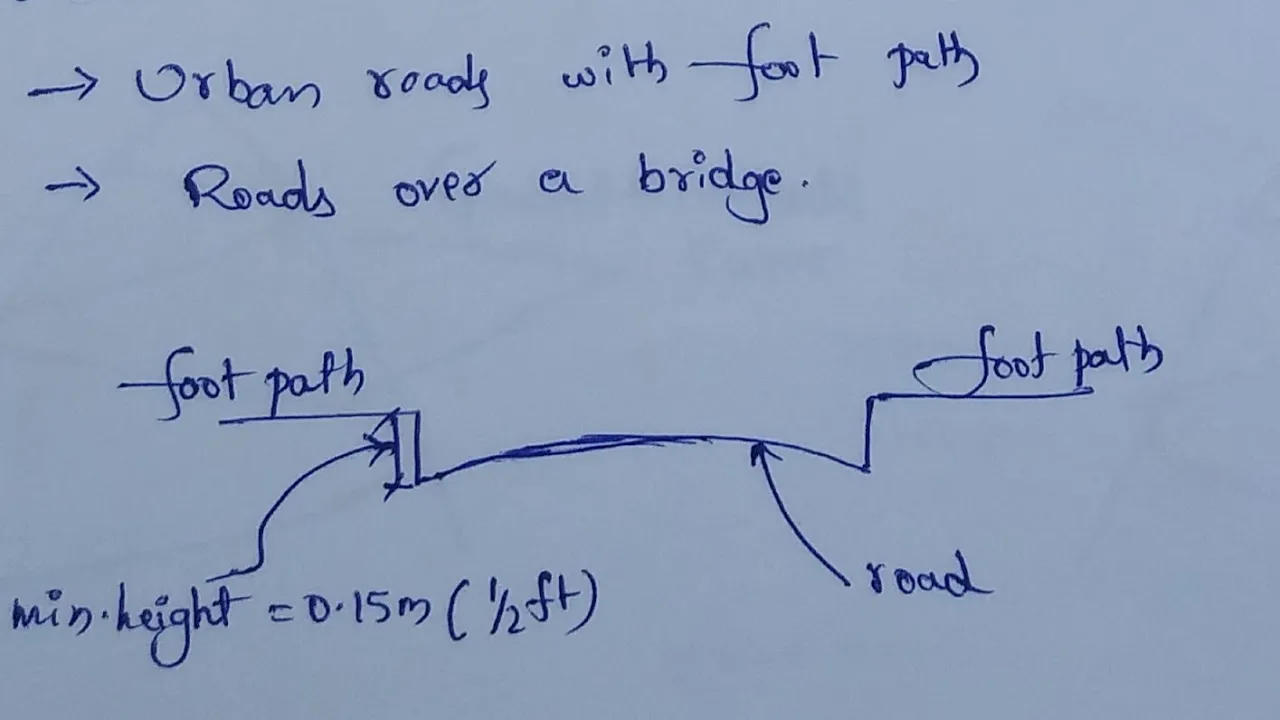 → Urban roads with foot path
→ Roads over a bridge.
foot path
foot path
min. height = 0.15m (1/2 ft)
road